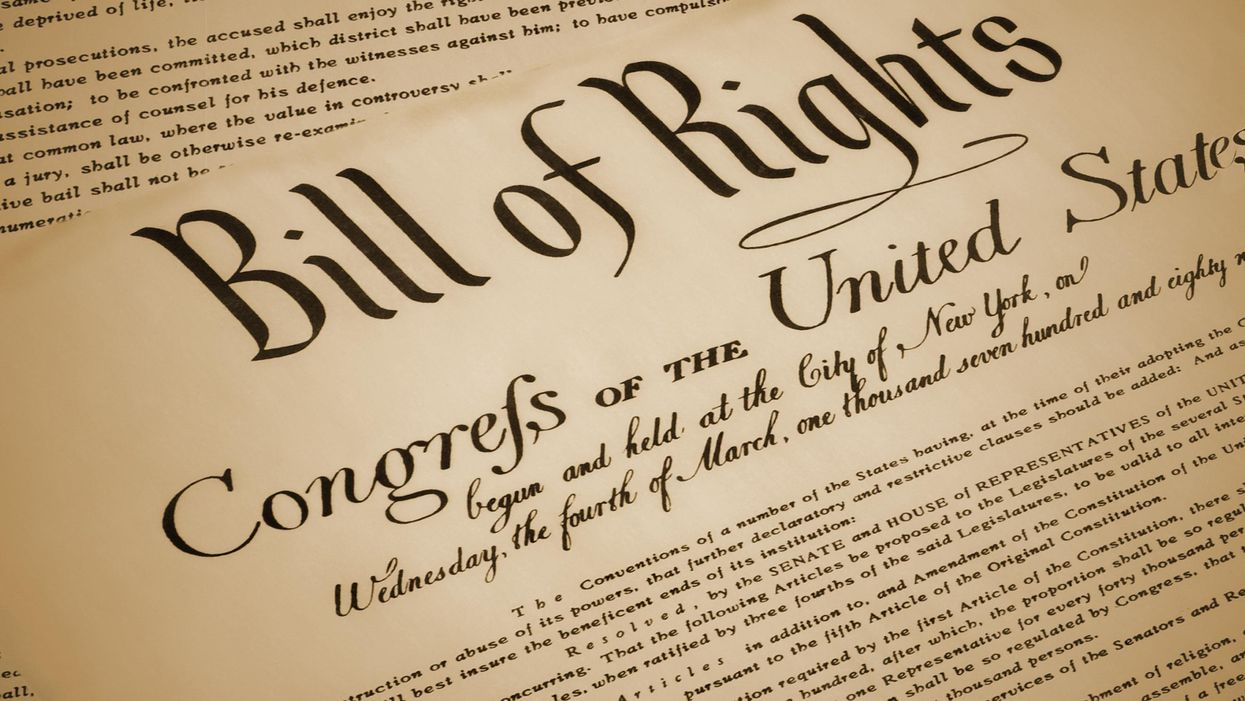 deprived of life,
prosecutions, the accused shall enjoy the
have been committed, which district shall have been
sation; to be confronted with the witnesses against him; to have
assistance of counsel for his defence.
common law, where the value in controversy
a jury, shall be otherwise re-exami
ive bail shall not be
Bill of Rights
Congreſs OF THE United States
begun and held at the City of New York, on
Wednesday, the fourth of March, one thousand seven hundred and eighty
The Conventions of a number of the States having, at the time of their adopting the
truction or abuse of its powers, that further declaratory and restrictive clauses should be added: And as
best insure the beneficent ends of its institution:
Resolved, by the SENATE and HOUSE of REPRESENTATIVES of the UNIT
concurring. That the following Articles be proposed to the Legislatures of the several
les, when ratified by three fourths of the said Legislatures, to be valid to all
Articles in addition to, and Amendment of the Constitution of the Uni
pursuant to the fifth Article of the Original Constitution.
required by the first Article of the Constitution, there
hundred, after which, the proportion shall be so regul
one Representative for every forty thousand per
shall be so regulated by Congress, that
thousand persons.
services of the Senators and Re
of religion,
assemble,
of a free